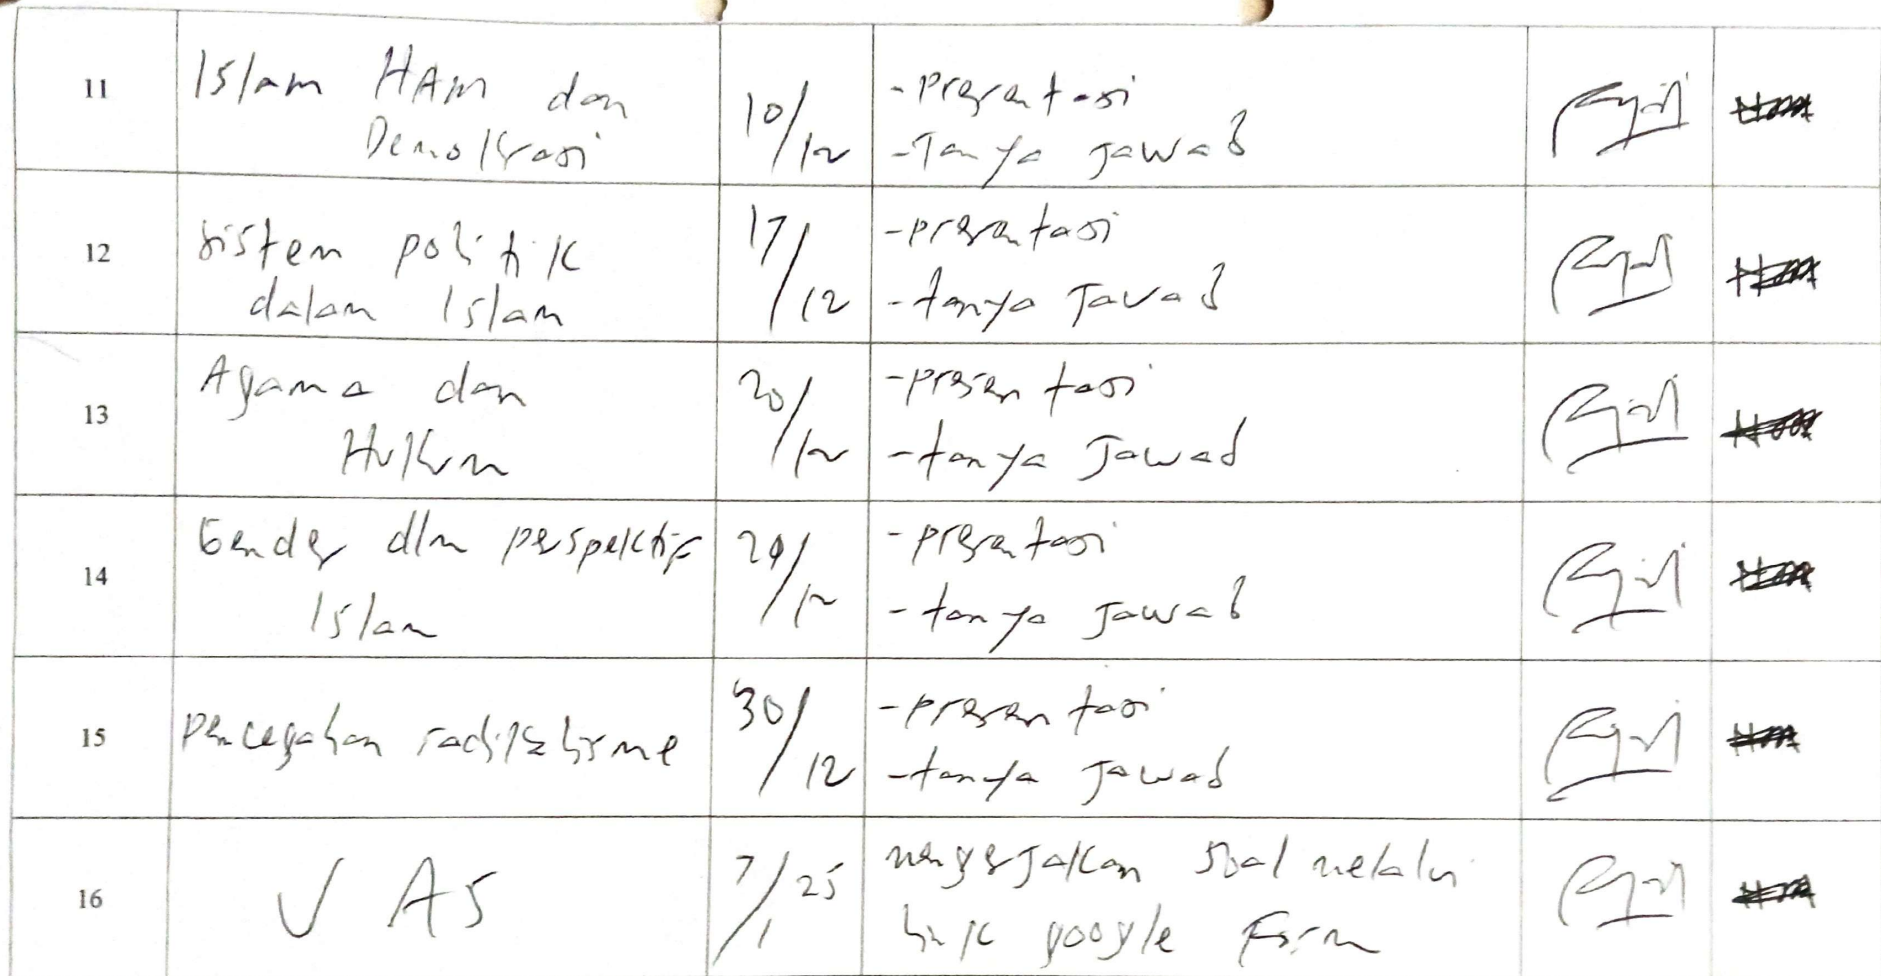 11
Islam HAM dan
Demokrasi
10/12
-presentasi
-Tanya jawab
12
sistem politik
dalam Islam
17/12
-presentasi
-tanya Jawab
13
Agama dan
Hukum
20/12
-presentasi
-tanya Jawab
14
Gender dlm perspektif
Islam
/12
-presentasi
-tanya Jawab
15
pencegahan radikalisme
30/12
-presentasi
-tanya Jawab
16
UAS
7/1 25
mengerjakan soal melalui
link google Form